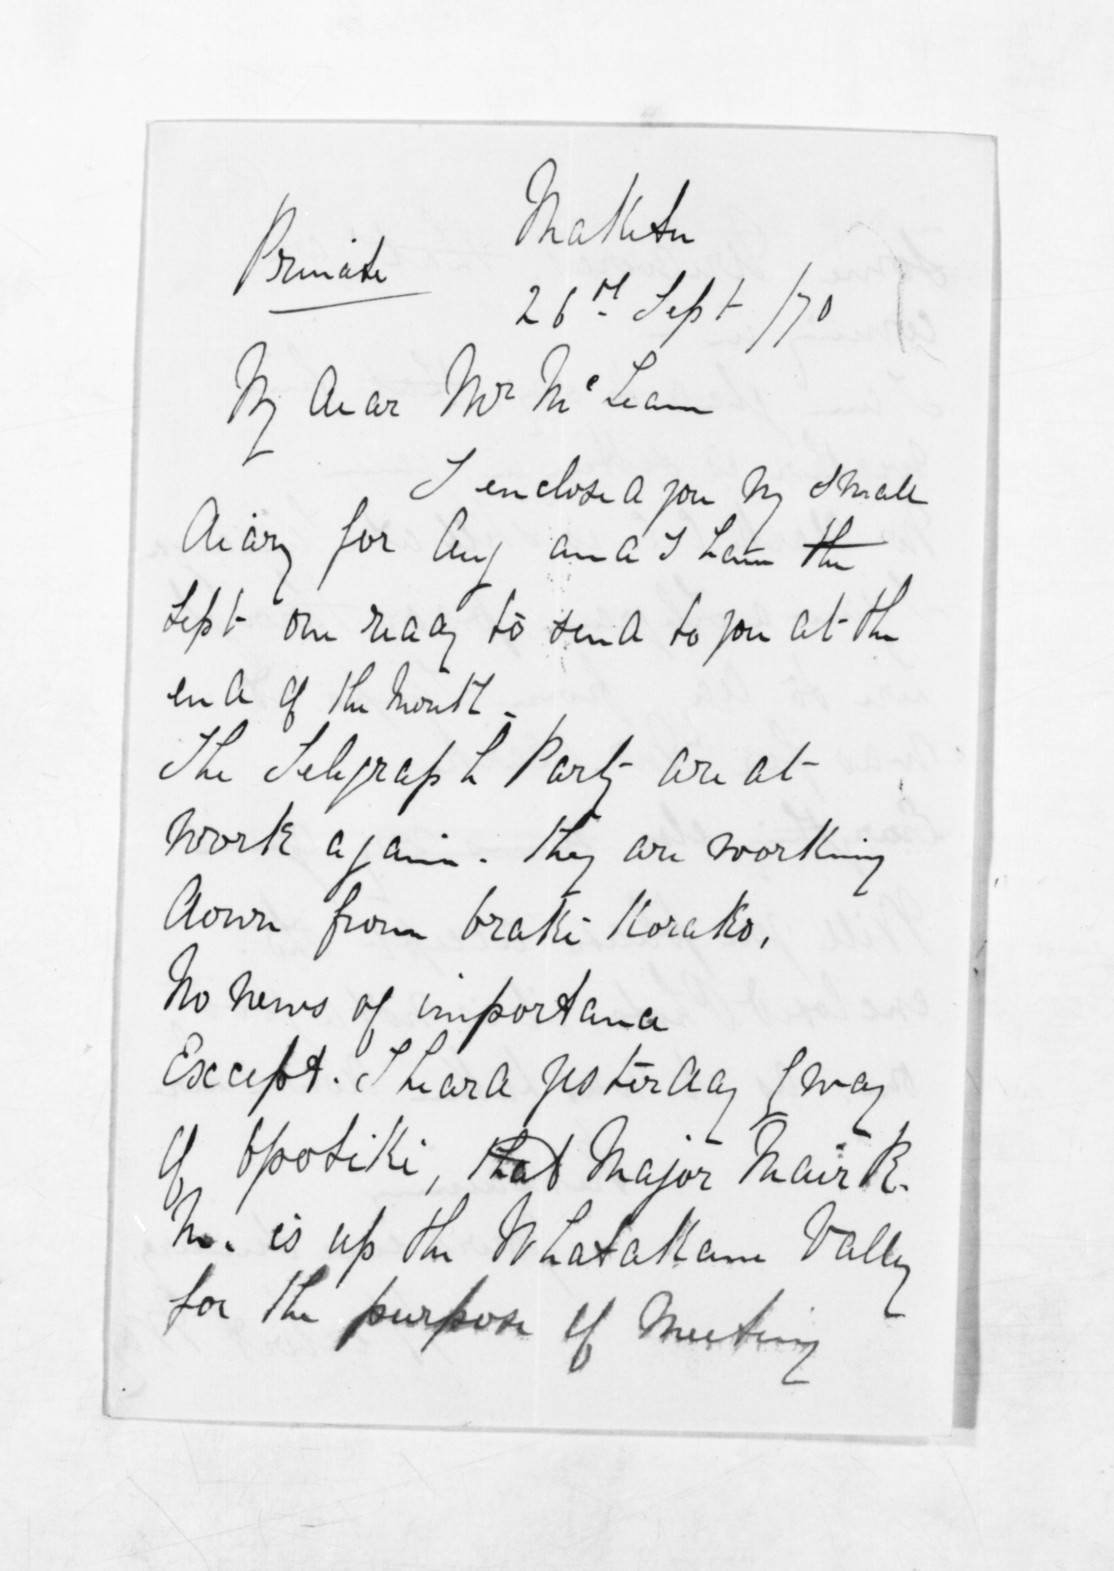 Maketu
Private
26th Sept /70
My dear Mr McLean
I enclosed you my small
diary for Aug and I have the
Sept one ready to send to you at the
end of the Month.
The Telegraph Party are at
work again. they are working
down from Oraki Korako,
No news of importance
Except. I heard yesterday (way
of Opotiki, that Major Mair R.
M. is up the Whakatane Valley
for the purpose of Meeting